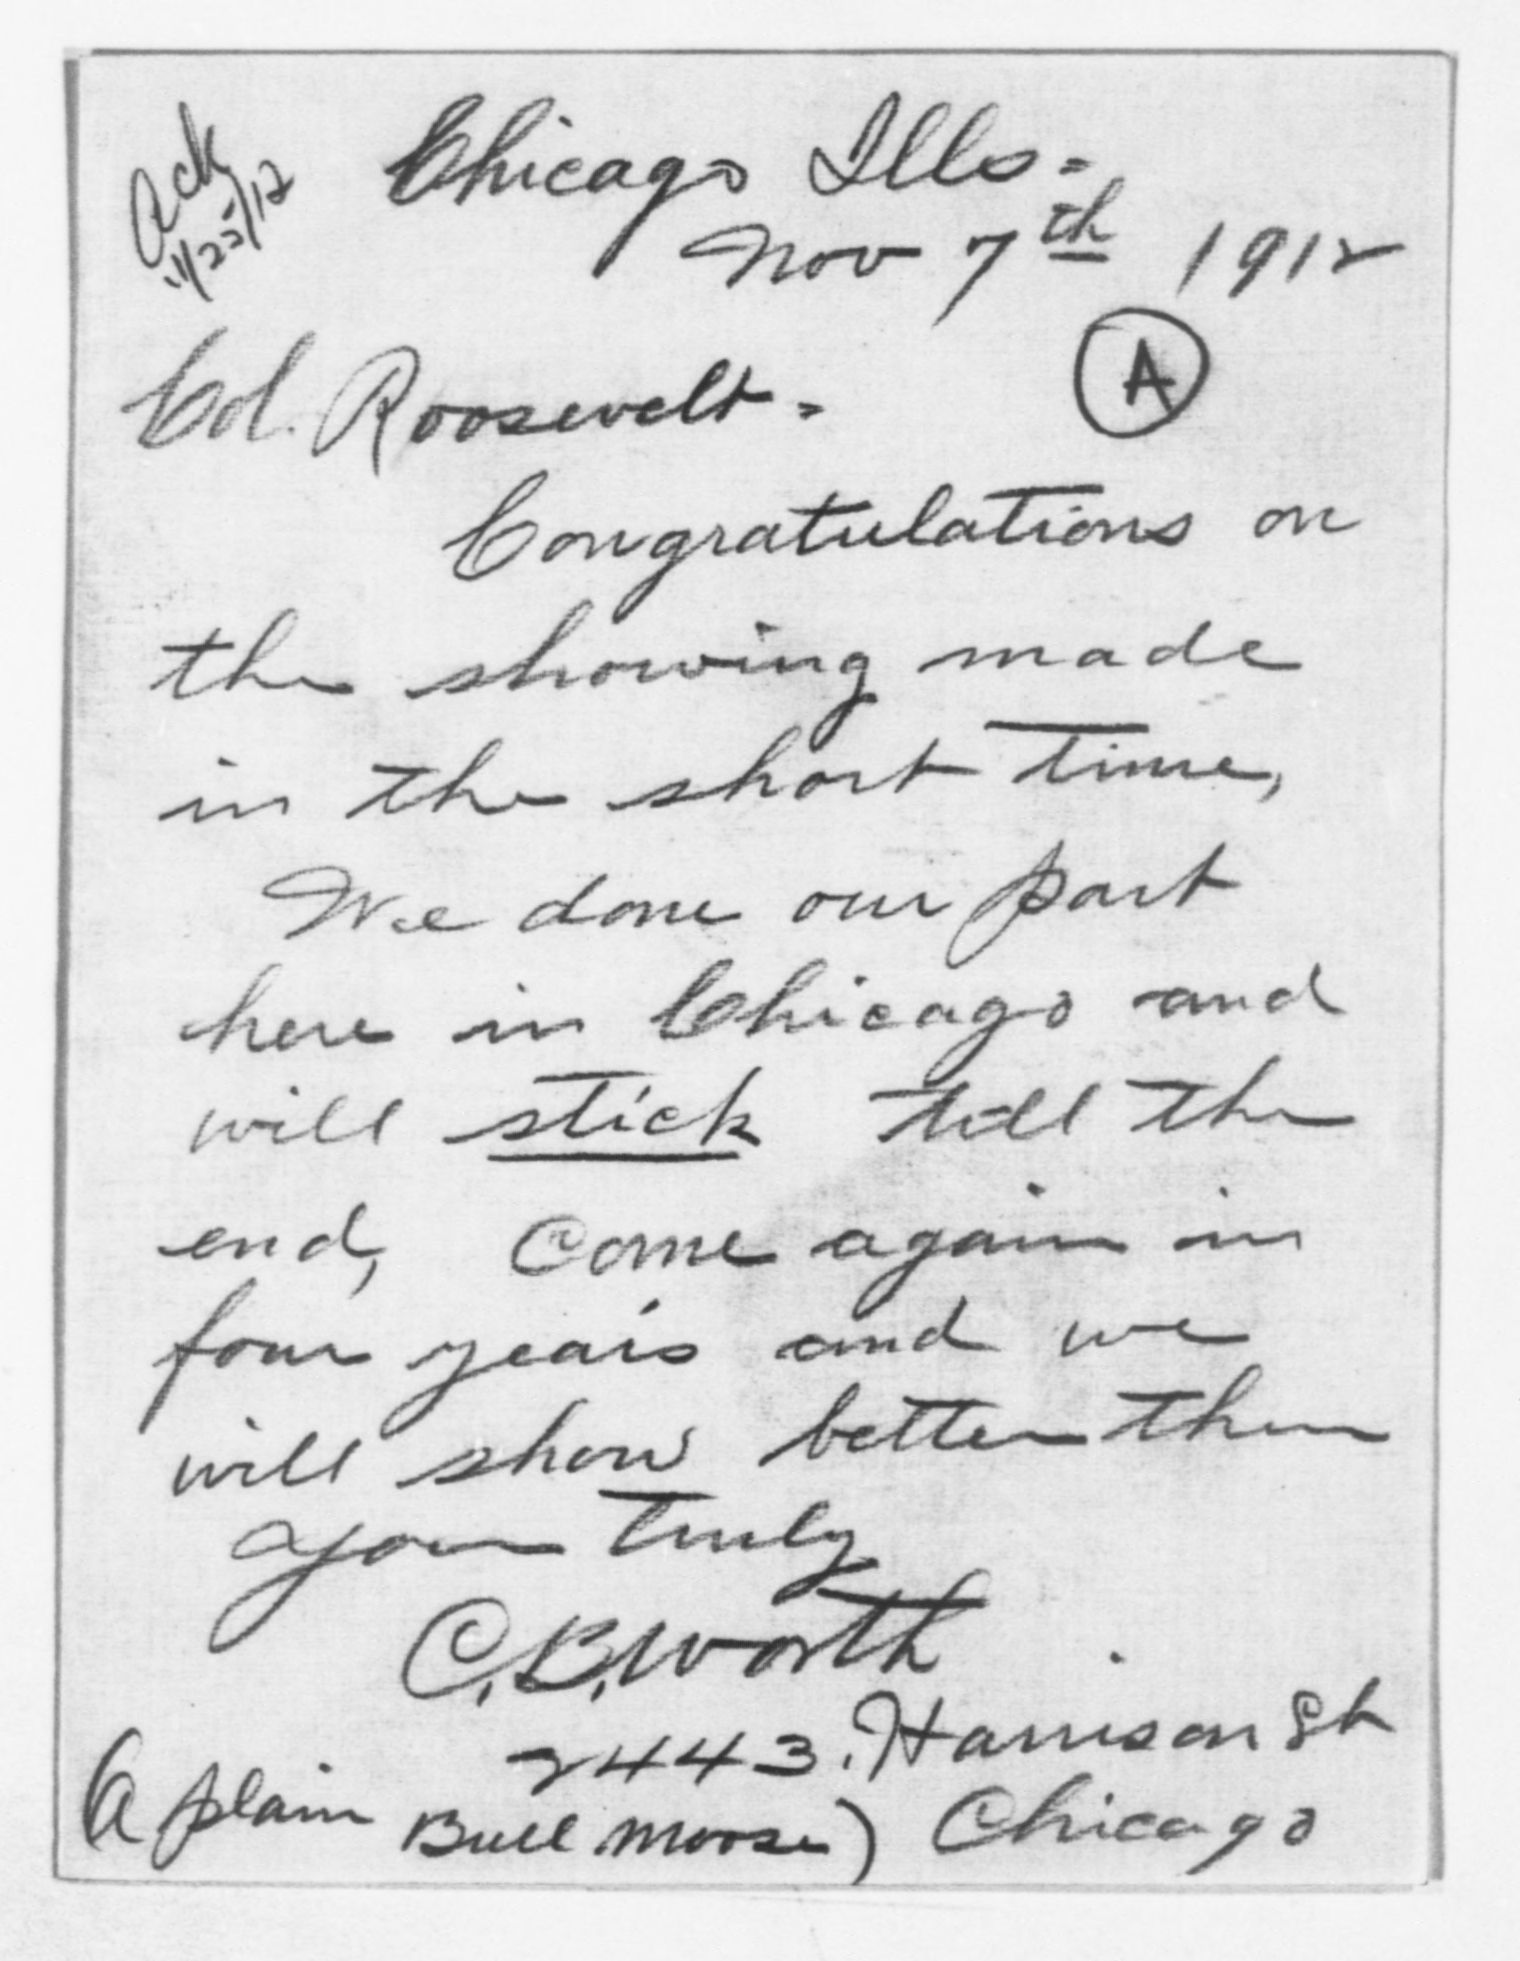 Ack
11/25/12
Chicago Ills-
Nov 7th 1912
Col. Roosevelt-
A
Congratulations on
the showing made
in the short time,
We done our part
here in Chicago and
will stick till the
end, Come again in
four years and we
will show better then
your truly
C.B. Worth
2443. Harrison St
(A plain Bull Moose) Chicago